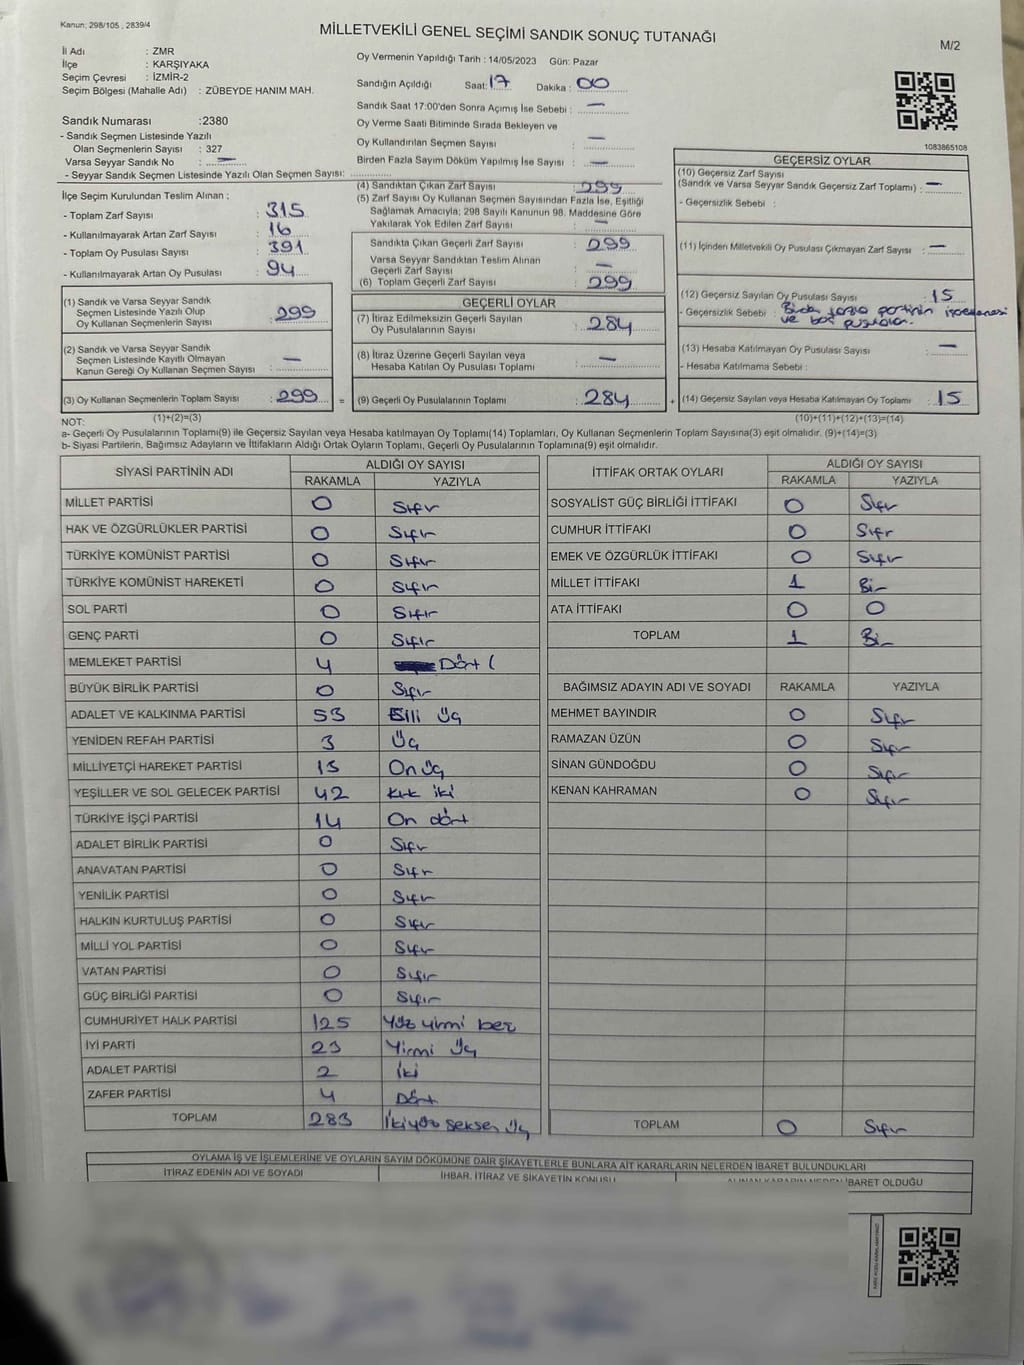 Kanun; 298/105 , 2839/4
MİLLETVEKİLİ GENEL SEÇİMİ SANDIK SONUÇ TUTANAĞI
M/2
İl Adı : ZMR
İlçe : KARŞIYAKA
Seçim Çevresi : İZMİR-2
Seçim Bölgesi (Mahalle Adı) : ZÜBEYDE HANIM MAH.
Oy Vermenin Yapıldığı Tarih : 14/05/2023 Gün: Pazar
Sandığın Açıldığı Saat: 17 Dakika : 00
Sandık Saat 17:00'den Sonra Açımış İse Sebebi : —
Oy Verme Saati Bitiminde Sırada Bekleyen ve
Oy Kullandırılan Seçmen Sayısı : —
Birden Fazla Sayım Döküm Yapılmış İse Sayısı : —
Sandık Numarası :2380
- Sandık Seçmen Listesinde Yazılı
Olan Seçmenlerin Sayısı : 327
Varsa Seyyar Sandık No : —
- Seyyar Sandık Seçmen Listesinde Yazılı Olan Seçmen Sayısı:
1083865108
İlçe Seçim Kurulundan Teslim Alınan ;
- Toplam Zarf Sayısı : 315
- Kullanılmayarak Artan Zarf Sayısı : 16
- Toplam Oy Pusulası Sayısı : 391
- Kullanılmayarak Artan Oy Pusulası : 94
(1) Sandık ve Varsa Seyyar Sandık
Seçmen Listesinde Yazılı Olup
Oy Kullanan Seçmenlerin Sayısı : 299
(2) Sandık ve Varsa Seyyar Sandık
Seçmen Listesinde Kayıtlı Olmayan
Kanun Gereği Oy Kullanan Seçmen Sayısı : —
(3) Oy Kullanan Seçmenlerin Toplam Sayısı : 299 =
(4) Sandıktan Çıkan Zarf Sayısı : 299
(5) Zarf Sayısı Oy Kullanan Seçmen Sayısından Fazla İse, Eşitliği
Sağlamak Amacıyla; 298 Sayılı Kanunun 98. Maddesine Göre
Yakılarak Yok Edilen Zarf Sayısı : —
Sandıkta Çıkan Geçerli Zarf Sayısı : 299
Varsa Seyyar Sandıktan Teslim Alınan
Geçerli Zarf Sayısı : —
(6) Toplam Geçerli Zarf Sayısı : 299
GEÇERLİ OYLAR
(7) İtiraz Edilmeksizin Geçerli Sayılan
Oy Pusulalarının Sayısı : 284
(8) İtiraz Üzerine Geçerli Sayılan veya
Hesaba Katılan Oy Pusulası Toplamı : —
(9) Geçerli Oy Pusulalarının Toplamı : 284 +
GEÇERSİZ OYLAR
(10) Geçersiz Zarf Sayısı
(Sandık ve Varsa Seyyar Sandık Geçersiz Zarf Toplamı) : —
- Geçersizlik Sebebi :
(11) İçinden Milletvekili Oy Pusulası Çıkmayan Zarf Sayısı : —
(12) Geçersiz Sayılan Oy Pusulası Sayısı : 15
- Geçersizlik Sebebi : Birden fazla partinin işaretlenmesi
ve boş pusulalar.
(13) Hesaba Katılmayan Oy Pusulası Sayısı : —
- Hesaba Katılmama Sebebi :
(14) Geçersiz Sayılan veya Hesaba Katılmayan Oy Toplamı : 15
NOT: (1)+(2)=(3) (10)+(11)+(12)+(13)=(14)
a- Geçerli Oy Pusulalarının Toplamı(9) ile Geçersiz Sayılan veya Hesaba katılmayan Oy Toplamı(14) Toplamları, Oy Kullanan Seçmenlerin Toplam Sayısına(3) eşit olmalıdır. (9)+(14)=(3)
b- Siyasi Partilerin, Bağımsız Adayların ve İttifakların Aldığı Ortak Oyların Toplamı, Geçerli Oy Pusulalarının Toplamına(9) eşit olmalıdır.
SİYASİ PARTİNİN ADI ALDIĞI OY SAYISI
RAKAMLA YAZIYLA
MİLLET PARTİSİ 0 Sıfır
HAK VE ÖZGÜRLÜKLER PARTİSİ 0 Sıfır
TÜRKİYE KOMÜNİST PARTİSİ 0 Sıfır
TÜRKİYE KOMÜNİST HAREKETİ 0 Sıfır
SOL PARTİ 0 Sıfır
GENÇ PARTİ 0 Sıfır
MEMLEKET PARTİSİ 4 Dört (
BÜYÜK BİRLİK PARTİSİ 0 Sıfır
ADALET VE KALKINMA PARTİSİ 53 Elli Üç
YENİDEN REFAH PARTİSİ 3 Üç
MİLLİYETÇİ HAREKET PARTİSİ 13 On üç
YEŞİLLER VE SOL GELECEK PARTİSİ 42 Kırk iki
TÜRKİYE İŞÇİ PARTİSİ 14 On dört
ADALET BİRLİK PARTİSİ 0 Sıfır
ANAVATAN PARTİSİ 0 Sıfır
YENİLİK PARTİSİ 0 Sıfır
HALKIN KURTULUŞ PARTİSİ 0 Sıfır
MİLLİ YOL PARTİSİ 0 Sıfır
VATAN PARTİSİ 0 Sıfır
GÜÇ BİRLİĞİ PARTİSİ 0 Sıfır
CUMHURİYET HALK PARTİSİ 125 Yüz yirmi beş
İYİ PARTİ 23 Yirmi Üç
ADALET PARTİSİ 2 İki
ZAFER PARTİSİ 4 Dört
TOPLAM 283 İkiyüz seksen Üç
İTTİFAK ORTAK OYLARI ALDIĞI OY SAYISI
RAKAMLA YAZIYLA
SOSYALİST GÜÇ BİRLİĞİ İTTİFAKI 0 Sıfır
CUMHUR İTTİFAKI 0 Sıfır
EMEK VE ÖZGÜRLÜK İTTİFAKI 0 Sıfır
MİLLET İTTİFAKI 1 Bir
ATA İTTİFAKI 0 0
TOPLAM 1 Bir
BAĞIMSIZ ADAYIN ADI VE SOYADI RAKAMLA YAZIYLA
MEHMET BAYINDIR 0 Sıfır
RAMAZAN ÜZÜN 0 Sıfır
SİNAN GÜNDOĞDU 0 Sıfır
KENAN KAHRAMAN 0 Sıfır
TOPLAM 0 Sıfır
OYLAMA İŞ VE İŞLEMLERİNE VE OYLARIN SAYIM DÖKÜMÜNE DAİR ŞİKAYETLERLE BUNLARA AİT KARARLARIN NELERDEN İBARET BULUNDUKLARI
İTİRAZ EDENİN ADI VE SOYADI
İHBAR, İTİRAZ VE ŞİKAYETİN KONUSU
ALINAN KARARIN NEDEN İBARET OLDUĞU